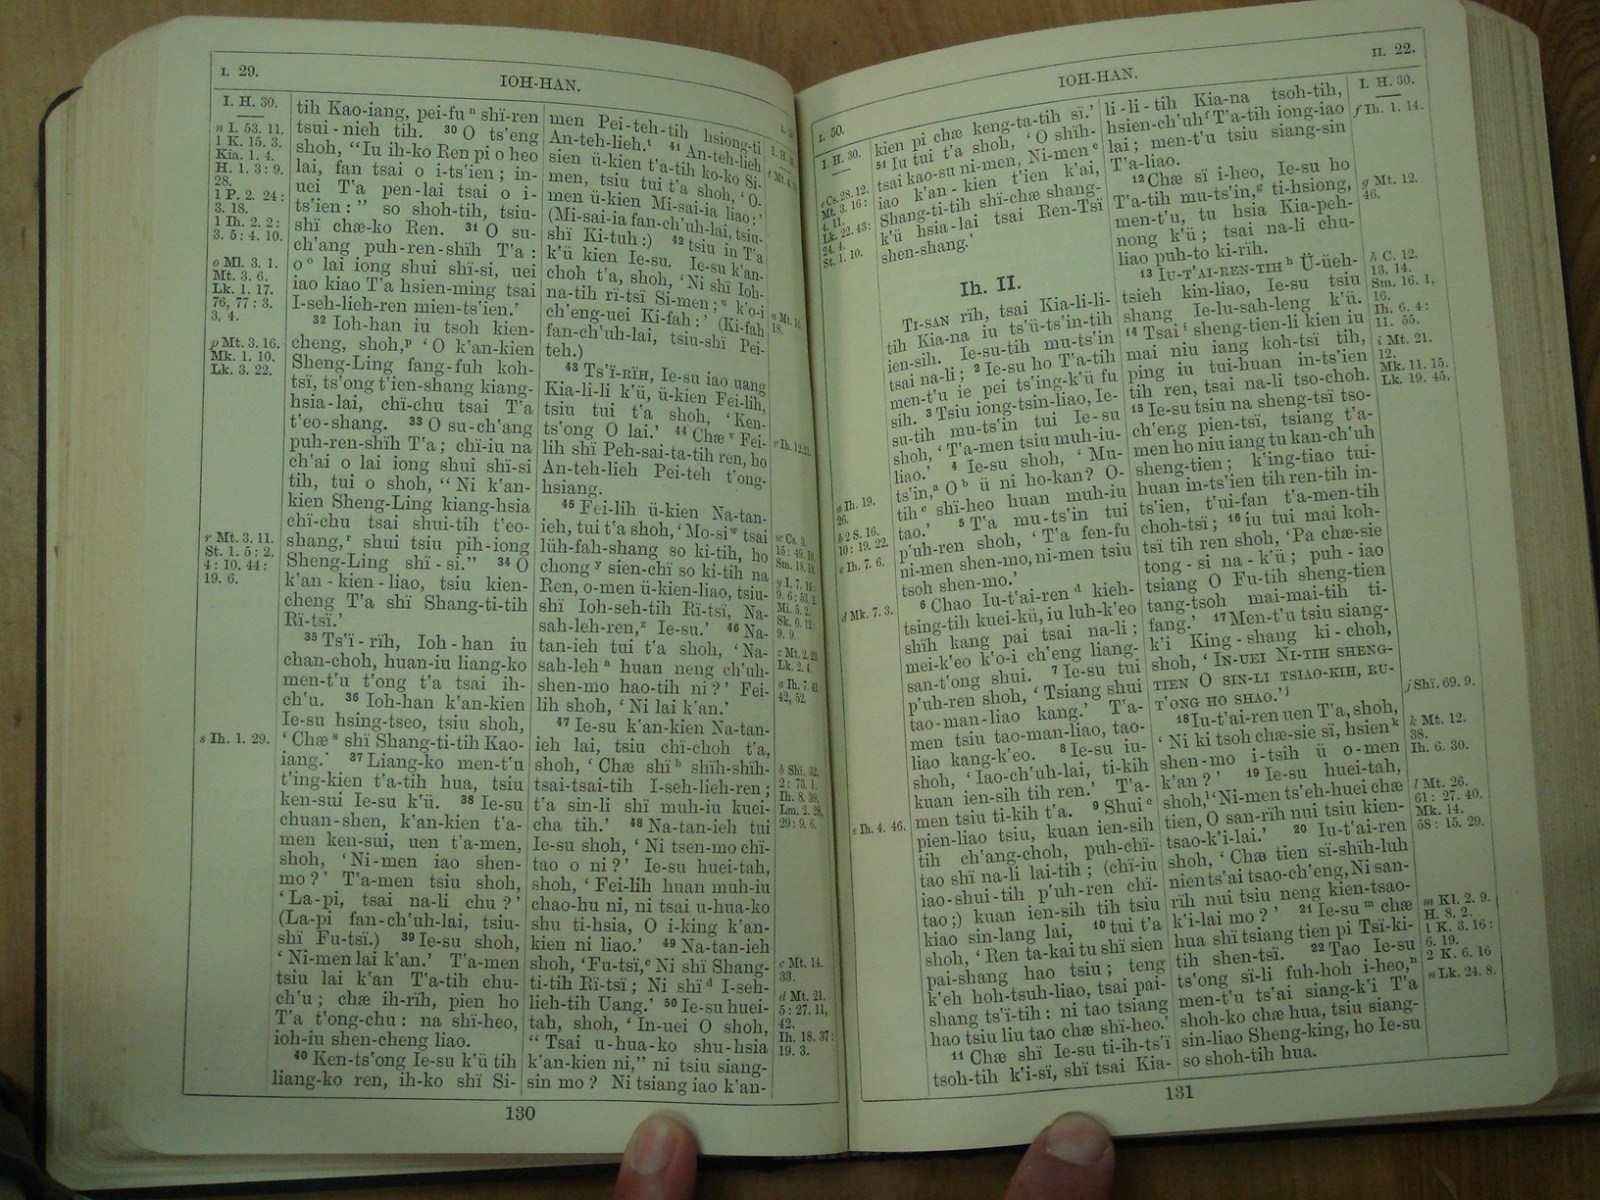 I. 29.
IOH-HAN.
I. H. 30.
n I. 53. 11.
1 K. 15. 3.
Kia. 1. 4.
H. 1. 3 : 9.
28.
1 P. 2. 24 :
3. 18.
1 Ih. 2. 2 :
3. 5 : 4. 10.
o Ml. 3. 1.
Mt. 3. 6.
Lk. 1. 17.
76, 77 : 3.
3, 4.
p Mt. 3. 16.
Mk. 1. 10.
Lk. 3. 22.
r Mt. 3. 11.
St. 1. 5 : 2.
4 : 10. 44 :
19. 6.
s Ih. 1. 29.
tih Kao-iang, pei-fu ⁿ shï-ren
tsui-nieh tih. ³⁰ O ts'eng
shoh, “Iu ih-ko Ren pi o heo
lai, fan tsai o i-ts'ien ; in-
uei T'a pen-lai tsai o i-
ts'ien :” so shoh-tih, tsiu-
shï chæ-ko Ren. ³¹ O su-
ch'ang puh-ren-shïh T'a :
o ᵒ lai iong shui shï-si, uei
iao kiao T'a hsien-ming tsai
I-seh-lieh-ren mien-ts'ien.’
³² Ioh-han iu tsoh kien-
cheng, shoh,ᵖ ‘O k'an-kien
Sheng-Ling fang-fuh koh-
tsï, ts'ong t'ien-shang kiang-
hsia-lai, chï-chu tsai T'a
t'eo-shang. ³³ O su-ch'ang
puh-ren-shïh T'a ; chï-iu na
ch'ai o lai iong shui shï-si
tih, tui o shoh, “Ni k'an-
kien Sheng-Ling kiang-hsia
chï-chu tsai shui-tih t'eo-
shang,ʳ shui tsiu pih-iong
Sheng-Ling shï-si.” ³⁴ O
k'an-kien-liao, tsiu kien-
cheng T'a shï Shang-ti-tih
Rï-tsï.’
³⁵ Ts'ï-rïh, Ioh-han iu
chan-choh, huan-iu liang-ko
men-t'u t'ong t'a tsai ih-
ch'u. ³⁶ Ioh-han k'an-kien
Ie-su hsing-tseo, tsiu shoh,
‘Chæ ˢ shï Shang-ti-tih Kao-
iang.’ ³⁷ Liang-ko men-t'u
t'ing-kien t'a-tih hua, tsiu
ken-sui Ie-su k'ü. ³⁸ Ie-su
chuan-shen, k'an-kien t'a-
men ken-sui, uen t'a-men,
shoh, ‘Ni-men iao shen-
mo?’ T'a-men tsiu shoh,
‘La-pi, tsai na-li chu?’
(La-pi fan-ch'uh-lai, tsiu-
shï Fu-tsï.) ³⁹ Ie-su shoh,
‘Ni-men lai k'an.’ T'a-men
tsiu lai k'an T'a-tih chu-
ch'u ; chæ ih-rïh, pien ho
T'a t'ong-chu : na shï-heo,
ioh-iu shen-cheng liao.
⁴⁰ Ken-ts'ong Ie-su k'ü tih
liang-ko ren, ih-ko shï Si-
men Pei-teh-tih hsiong-ti
An-teh-lieh.ᵗ ⁴¹ An-teh-lieh
sien ü-kien t'a-tih ko-ko Si-
men, tsiu tui t'a shoh, ‘O-
men ü-kien Mi-sai-ia liao :’
(Mi-sai-ia fan-ch'uh-lai, tsiu-
shï Ki-tuh :) ⁴² tsiu in T'a
k'ü kien Ie-su. Ie-su k'an-
choh t'a, shoh, ‘Ni shï Ioh-
na-tih rï-tsï Si-men ;ᵘ k'o-i
ch'eng-uei Ki-fah :’ (Ki-fah
fan-ch'uh-lai, tsiu-shï Pei-
teh.)
⁴³ Ts'ï-rïh, Ie-su iao uang
Kia-li-li k'ü, ü-kien Fei-lih,
tsiu tui t'a shoh, ‘Ken-
ts'ong O lai.’ ⁴⁴ Chæ ᵛ Fei-
lih shï Peh-sai-ta-tih ren, ho
An-teh-lieh Pei-teh t'ong-
hsiang.
⁴⁵ Fei-lih ü-kien Na-tan-
ieh, tui t'a shoh, ‘Mo-si ʷ tsai
lüh-fah-shang so ki-tih, ho
chong ʸ sien-chï so ki-tih na
Ren, o-men ü-kien-liao, tsiu-
shï Ioh-seh-tih Rï-tsï, Na-
sah-leh-ren,ᶻ Ie-su.’ ⁴⁶ Na-
tan-ieh tui t'a shoh, ‘Na-
sah-leh ᵃ huan neng ch'uh-
shen-mo hao-tih ni?’ Fei-
lih shoh, ‘Ni lai k'an.’
⁴⁷ Ie-su k'an-kien Na-tan-
ieh lai, tsiu chï-choh t'a,
shoh, ‘Chæ shï ᵇ shïh-shïh-
tsai-tsai-tih I-seh-lieh-ren ;
t'a sin-li shï muh-iu kuei-
cha tih.’ ⁴⁸ Na-tan-ieh tui
Ie-su shoh, ‘Ni tsen-mo chï-
tao o ni?’ Ie-su huei-tah,
shoh, ‘Fei-lih huan muh-iu
chao-hu ni, ni tsai u-hua-ko
shu ti-hsia, O i-king k'an-
kien ni liao.’ ⁴⁹ Na-tan-ieh
shoh, ‘Fu-tsï,ᶜ Ni shï Shang-
ti-tih Rï-tsï ; Ni shï ᵈ I-seh-
lieh-tih Uang.’ ⁵⁰ Ie-su huei-
tah, shoh, ‘In-uei O shoh,
“Tsai u-hua-ko shu-hsia
k'an-kien ni,” ni tsiu siang-
sin mo? Ni tsiang iao k'an-
v Ih. 12.21.
15 : 49. 10.
Sm. 18. 18.
Mi. 5. 2.
9. 9.
Lk. 2. 4.
a Ih. 7. 41,
42, 52.
b Shï. 32.
2 : 73. 1.
Ih. 8. 39.
Lm. 2. 28,
29 : 9. 6.
c Mt. 14.
33.
d Mt. 21.
5 : 27. 11,
42.
Ih. 18. 37 :
19. 3.
130
I. 50.
IOH-HAN.
II. 22.
I. H. 30.
e Cs. 28. 12.
Mt. 3. 16 :
4. 11.
Lk. 22. 43 :
24. 4.
St. 1. 10.
a Ih. 19.
26.
b 2 S. 16.
10 : 19. 22.
c Ih. 7. 6.
d Mk. 7. 3.
e Ih. 4. 46.
kien pi chæ keng-ta-tih sï.’
⁵¹ Iu tui t'a shoh, ‘O shïh-
tsai kao-su ni-men, Ni-men ᵉ
iao k'an-kien t'ien k'ai,
Shang-ti-tih shï-chæ shang-
k'ü hsia-lai tsai Ren-Tsï
shen-shang.’
Ih. II.
Ti-san rïh, tsai Kia-li-li-
tih Kia-na iu ts'ü-ts'in-tih
ien-sih. Ie-su-tih mu-ts'in
tsai na-li ; ² Ie-su ho T'a-tih
men-t'u ie pei ts'ing-k'ü fu
sih. ³ Tsiu iong-tsin-liao, Ie-
su-tih mu-ts'in tui Ie-su
shoh, ‘T'a-men tsiu muh-iu-
liao.’ ⁴ Ie-su shoh, ‘Mu-
ts'in,ᵃ O ᵇ ü ni ho-kan? O-
tih ᶜ shï-heo huan muh-iu
tao.’ ⁵ T'a mu-ts'in tui
p'uh-ren shoh, ‘T'a fen-fu
ni-men shen-mo, ni-men tsiu
tsoh shen-mo.’
⁶ Chao Iu-t'ai-ren ᵈ kieh-
tsing-tih kuei-kü, iu luh-k'eo
shïh kang pai tsai na-li ;
mei-k'eo k'o-i ch'eng liang-
san-t'ong shui. ⁷ Ie-su tui
p'uh-ren shoh, ‘Tsiang shui
tao-man-liao kang.’ T'a-
men tsiu tao-man-liao, tao-
liao kang-k'eo. ⁸ Ie-su iu-
shoh, ‘Iao-ch'uh-lai, ti-kih
kuan ien-sih tih ren.’ T'a-
men tsiu ti-kih t'a. ⁹ Shui ᵉ
pien-liao tsiu, kuan ien-sih
tih ch'ang-choh, puh-chï-
tao shï na-li lai-tih ; (chï-iu
iao-shui-tih p'uh-ren chï-
tao ;) kuan ien-sih tih tsiu
kiao sin-lang lai, ¹⁰ tui t'a
shoh, ‘Ren ta-kai tu shï sien
pai-shang hao tsiu ; teng
k'eh hoh-tsuh-liao, tsai pai-
shang ts'ï-tih : ni tao tsiang
hao tsiu liu tao chæ shï-heo.’
¹¹ Chæ shï Ie-su ti-ih-ts'ï
tsoh-tih k'i-sï, shï tsai Kia-
li-li-tih Kia-na tsoh-tih,
hsien-ch'uh ᶠ T'a-tih iong-iao
lai ; men-t'u tsiu siang-sin
T'a-liao.
¹² Chæ sï i-heo, Ie-su ho
T'a-tih mu-ts'in,ᵍ ti-hsiong,
men-t'u, tu hsia Kia-peh-
nong k'ü ; tsai na-li chu-
liao puh-to ki-rïh.
¹³ Iu-t'ai-ren-tih ʰ Ü-üeh-
tsieh kin-liao, Ie-su tsiu
shang Ie-lu-sah-leng k'ü.
¹⁴ Tsai ⁱ sheng-tien-li kien iu
mai niu iang koh-tsï tih,
ping iu tui-huan in-ts'ien
tih ren, tsai na-li tso-choh.
¹⁵ Ie-su tsiu na sheng-tsï tso-
ch'eng pien-tsï, tsiang t'a-
men ho niu iang tu kan-ch'uh
sheng-tien ; k'ing-tiao tui-
huan in-ts'ien tih ren-tih in-
ts'ien, t'ui-fan t'a-men-tih
choh-tsï ; ¹⁶ iu tui mai koh-
tsï tih ren shoh, ‘Pa chæ-sie
tong-si na-k'ü ; puh-iao
tsiang O Fu-tih sheng-tien
tang-tsoh mai-mai-tih ti-
fang.’ ¹⁷ Men-t'u tsiu siang-
k'i King-shang ki-choh,
shoh, ‘In-uei Ni-tih sheng-
tien O sin-li tsiao-kih, ru-
t'ong ho shao.’ʲ
¹⁸ Iu-t'ai-ren uen T'a, shoh,
‘Ni ki tsoh chæ-sie sï, hsien ᵏ
shen-mo i-tsih ü o-men
k'an?’ ¹⁹ Ie-su huei-tah,
shoh,ˡ ‘Ni-men ts'eh-huei chæ
tien, O san-rïh nui tsiu kien-
tsao-k'i-lai.’ ²⁰ Iu-t'ai-ren
shoh, ‘Chæ tien sï-shïh-luh
nien ts'ai tsao-ch'eng, Ni san-
rïh nui tsiu neng kien-tsao-
k'i-lai mo?’ ²¹ Ie-su ᵐ chæ
hua shï tsiang tien pi Tsï-ki-
tih shen-tsï. ²² Tao Ie-su
ts'ong sï-li fuh-hoh i-heo,ⁿ
men-t'u ts'ai siang-k'i T'a
shoh-ko chæ hua, tsiu siang-
sin-liao Sheng-king, ho Ie-su
so shoh-tih hua.
I. H. 30.
f Ih. 1. 14.
g Mt. 12.
46.
h C. 12.
13, 14.
Sm. 16. 1,
16.
Ih. 6. 4 :
11. 55.
i Mt. 21.
12.
Mk. 11. 15.
Lk. 19. 45.
j Shï. 69. 9.
k Mt. 12.
38.
Ih. 6. 30.
l Mt. 26.
61 : 27. 40.
Mk. 14.
58 : 15. 29.
m Kl. 2. 9.
H. 8. 2.
1 K. 3. 16 :
6. 19.
2 K. 6. 16
n Lk. 24. 8.
131